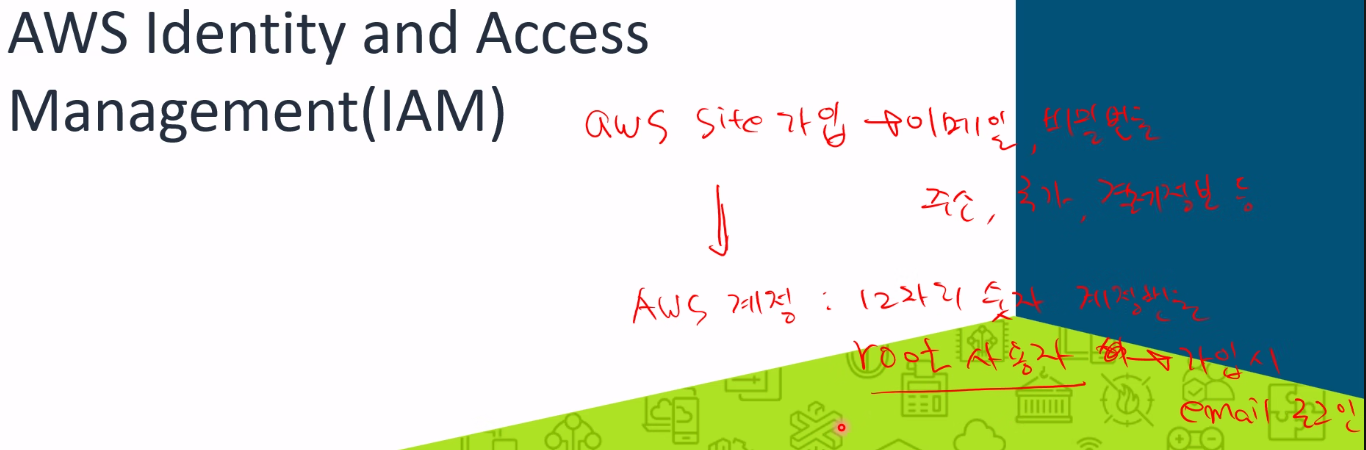 AWS Identity and Access
Management(IAM)
aws site 가입 → 이메일, 비밀번호
주소, 국가, 결제정보 등
AWS 계정 : 12자리 숫자 계정번호
root 사용자 → 가입시
email 로그인